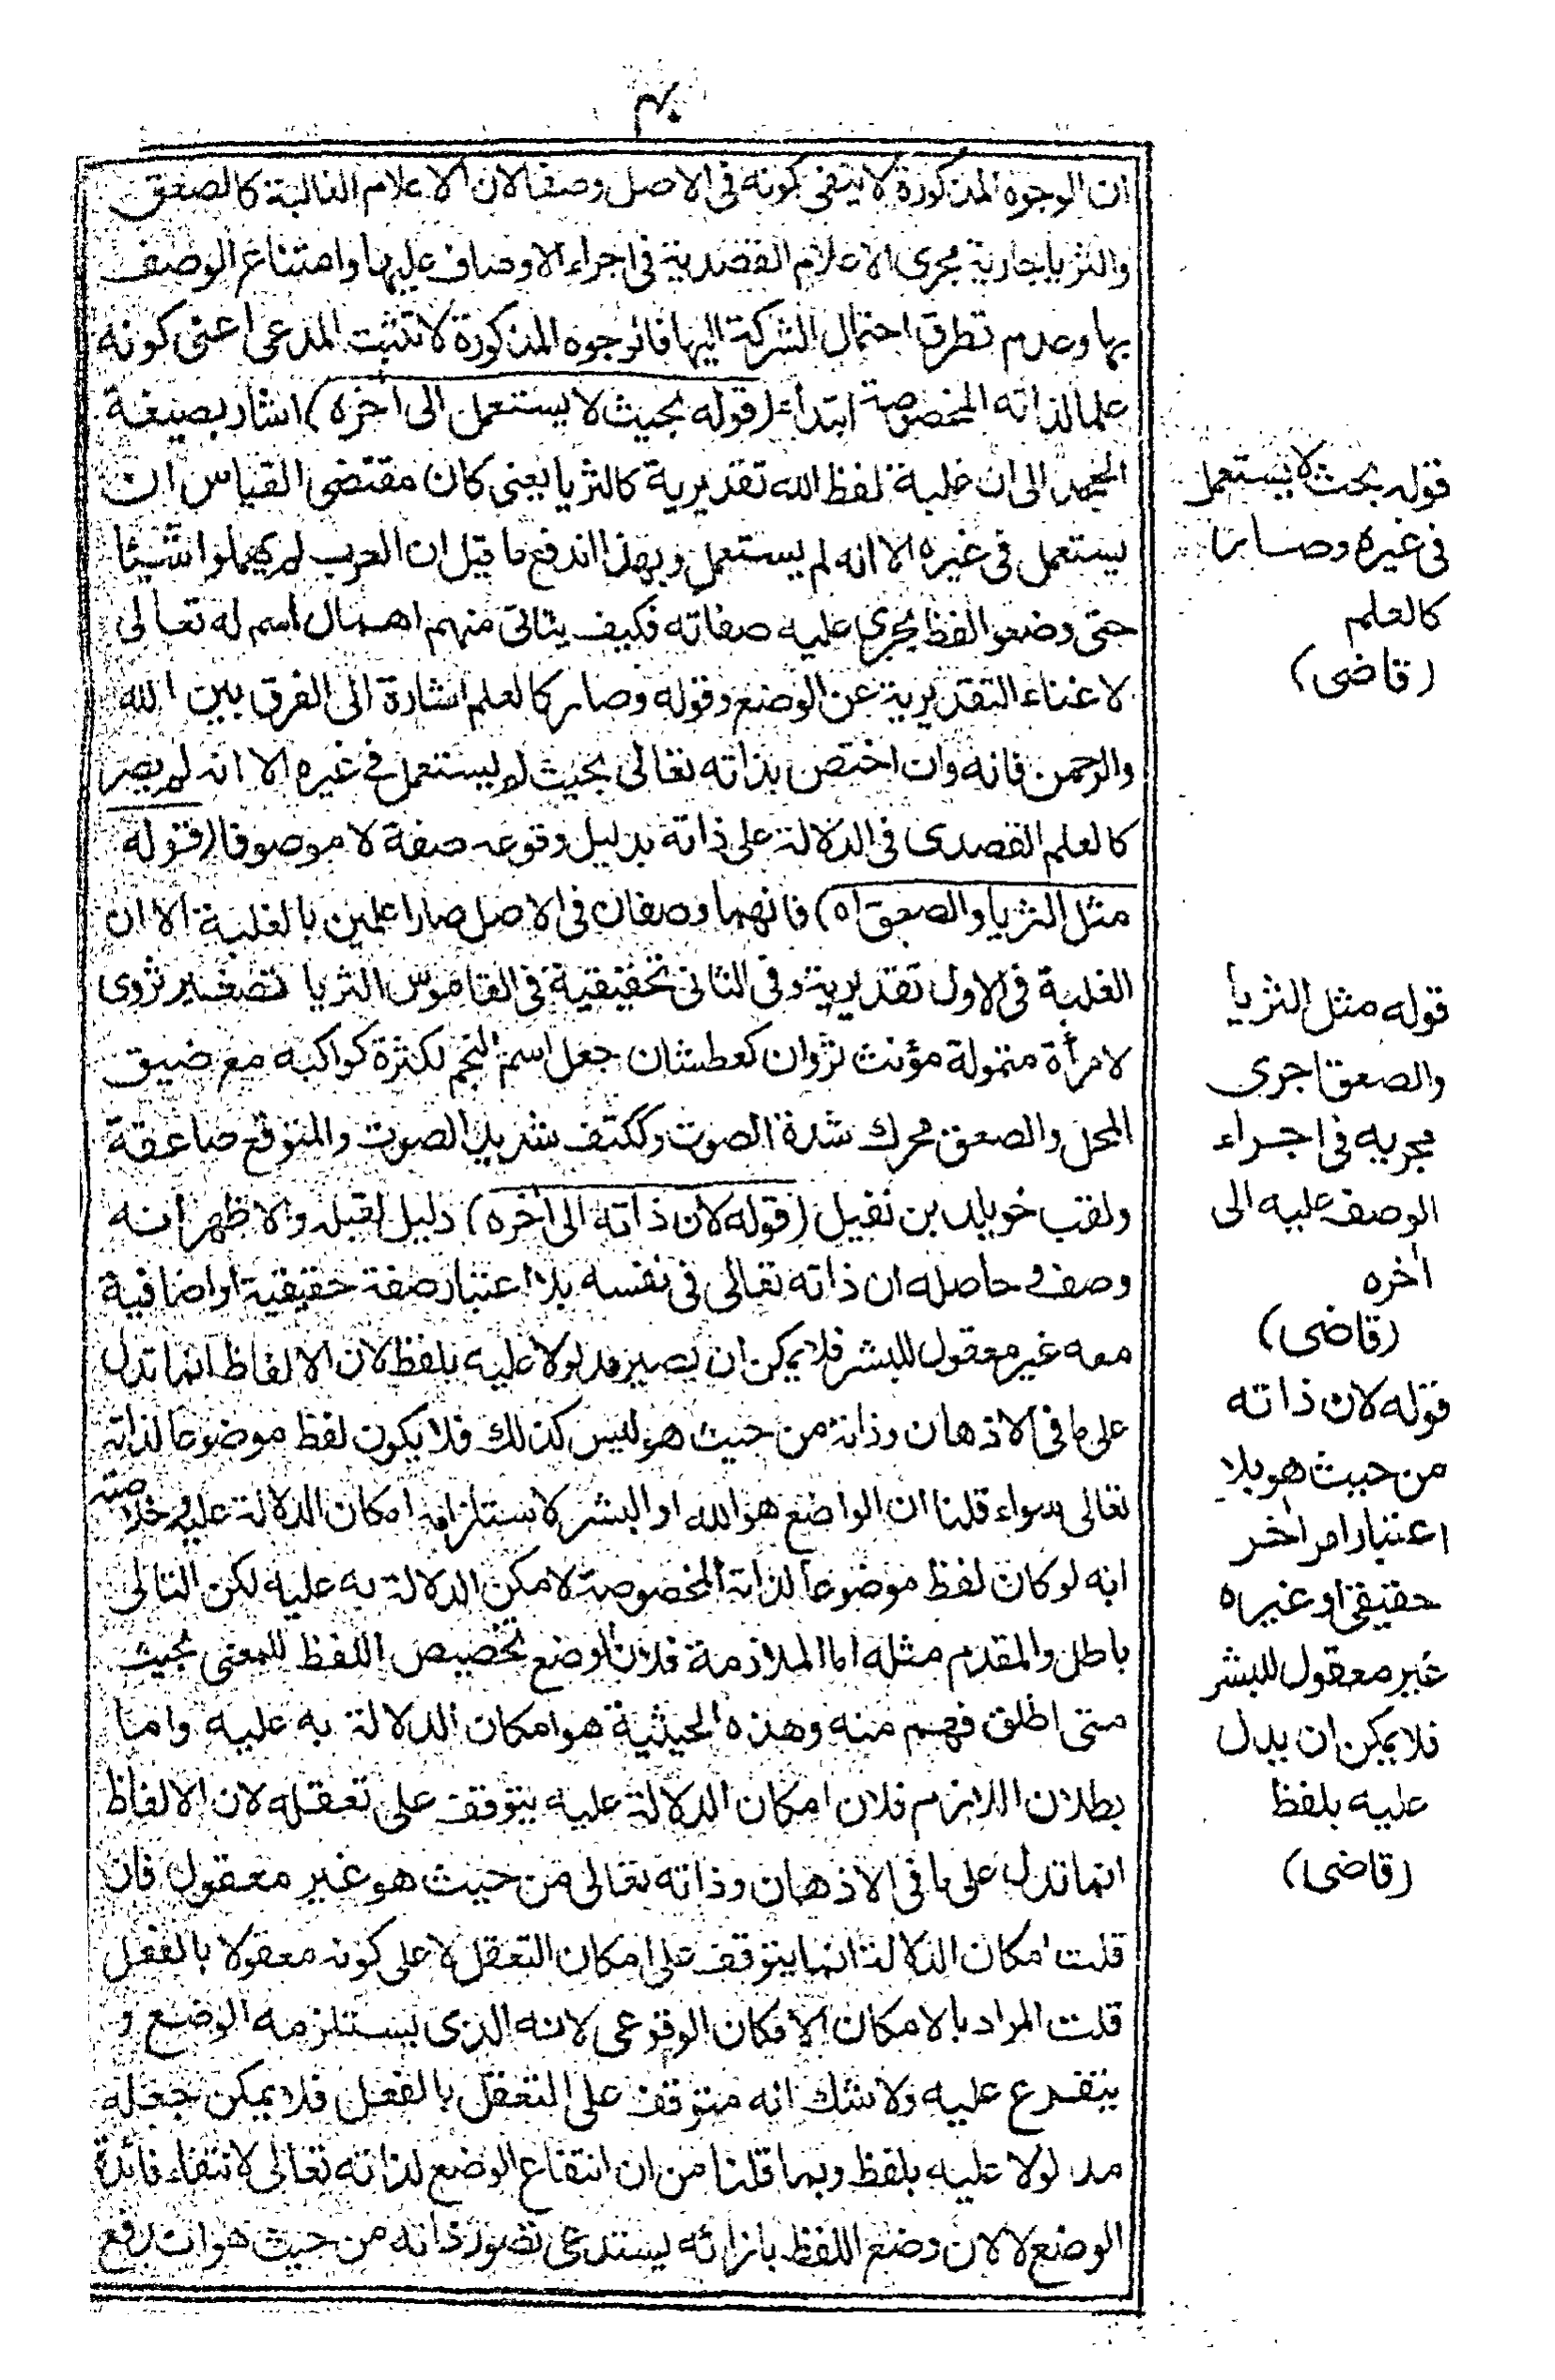 ان الوجوه المذكورة لا ينفى كونه فى الاصل وصفا لان الاعلام الغالبة كالصعق
والثريا جارية مجرى الاعلام القصدية فى اجراء الاوصاف عليها وامتناع الوصف
بها وعدم تطرق احتمال الشركة اليها فالوجوه المذكورة لا تثبت المدعى اعنى كونه
علما لذاته المخصوصة ابتداء (قوله بحيث لا يستعمل الى أخره) اشار بصيغة
الى ان غلبة لفظ الله تقديرية كالثريا يعنى كان مقتضى القياس ان
يستعمل فى غيره الا انه لم يستعمل وبهذا اندفع ما قيل ان العرب لم يهملوا شيئا
حتى وضعوا لفظا يجرى عليه صفاته فكيف يتاتى منهم اهمال اسم له تعالى
لاغناء التقديرية عن الوضع وقوله وصار كالعلم اشارة الى الفرق بين الله
والرحمن فانه وان اختص بذاته تعالى بحيث لم يستعمل فى غيره الا انه لم يصر
كالعلم القصدى فى الدلالة على ذاته بدليل وقوعه صفة لا موصوفا (قوله
مثل الثريا والصعق اه) فانهما وصفان فى الاصل صارا علمين بالغلبة الا ان
الغلبة فى الاول تقديرية وفى الثانى تحقيقية فى القاموس الثريا تصغير ثروى
لامرأة متمولة مؤنث ثروان كعطشان جعل اسم النجم لكثرة كواكبه مع ضيق
المحل والصعق محرك شدة الصوت وككتف شديد الصوت والمتوقع صاعقة
ولقب خويلد بن نفيل (قوله لان ذاته الى أخره) دليل لقيله والاظهر انه
وصف و حاصله ان ذاته تعالى فى نفسه بلا اعتبار صفة حقيقية او اضافية
معه غير معقول للبشر فلا يمكن ان يصير مدلولا عليه بلفظ لان الالفاظ انما تدل
على ما فى الاذهان وذاته من حيث هو ليس كذلك فلا يكون لفظ موضوعا لذاته
تعالى سواء قلنا ان الواضع هو الله او البشر لاستلزامه امكان الدلالة عليه و خلاصته
انه لو كان لفظ موضوعا لذاته المخصوصة لامكن الدلالة به عليه لكن التالى
باطل والمقدم مثله اما الملازمة فلان الوضع تخصيص اللفظ للمعنى بحيث
متى اطلق فهم منه وهذه الحيثية هو امكان الدلالة به عليه واما
بطلان اللازم فلان امكان الدلالة عليه يتوقف على تعقله لان الالفاظ
انما تدل على ما فى الاذهان وذاته تعالى من حيث هو غير معقول فان
قلت امكان الدلالة انما يتوقف على امكان التعقل لا على كونه معقولا بالفعل
قلت المراد بالامكان الامكان الوقوعى لانه الذى يستلزمه الوضع و
يتفرع عليه ولا شك انه متوقف على التعقل بالفعل فلا يمكن جعله
مدلولا عليه بلفظ وبما قلنا من ان انتفاع الوضع لذاته تعالى لانتفاء فائدة
الوضع لا لان وضع اللفظ بازائه يستدعى تصور ذاته من حيث هو اندفع
قوله بحيث لا يستعمل
فى غيره وصار
كالعلم
(قاضى)
قوله مثل الثريا
والصعق اجرى
مجريه فى اجراء
الوصف عليه الى
أخره
(قاضى)
قوله لان ذاته
من حيث هو بلا
اعتبار امر اخر
حقيقى او غيره
غير معقول للبشر
فلا يمكن ان يدل
عليه بلفظ
(قاضى)